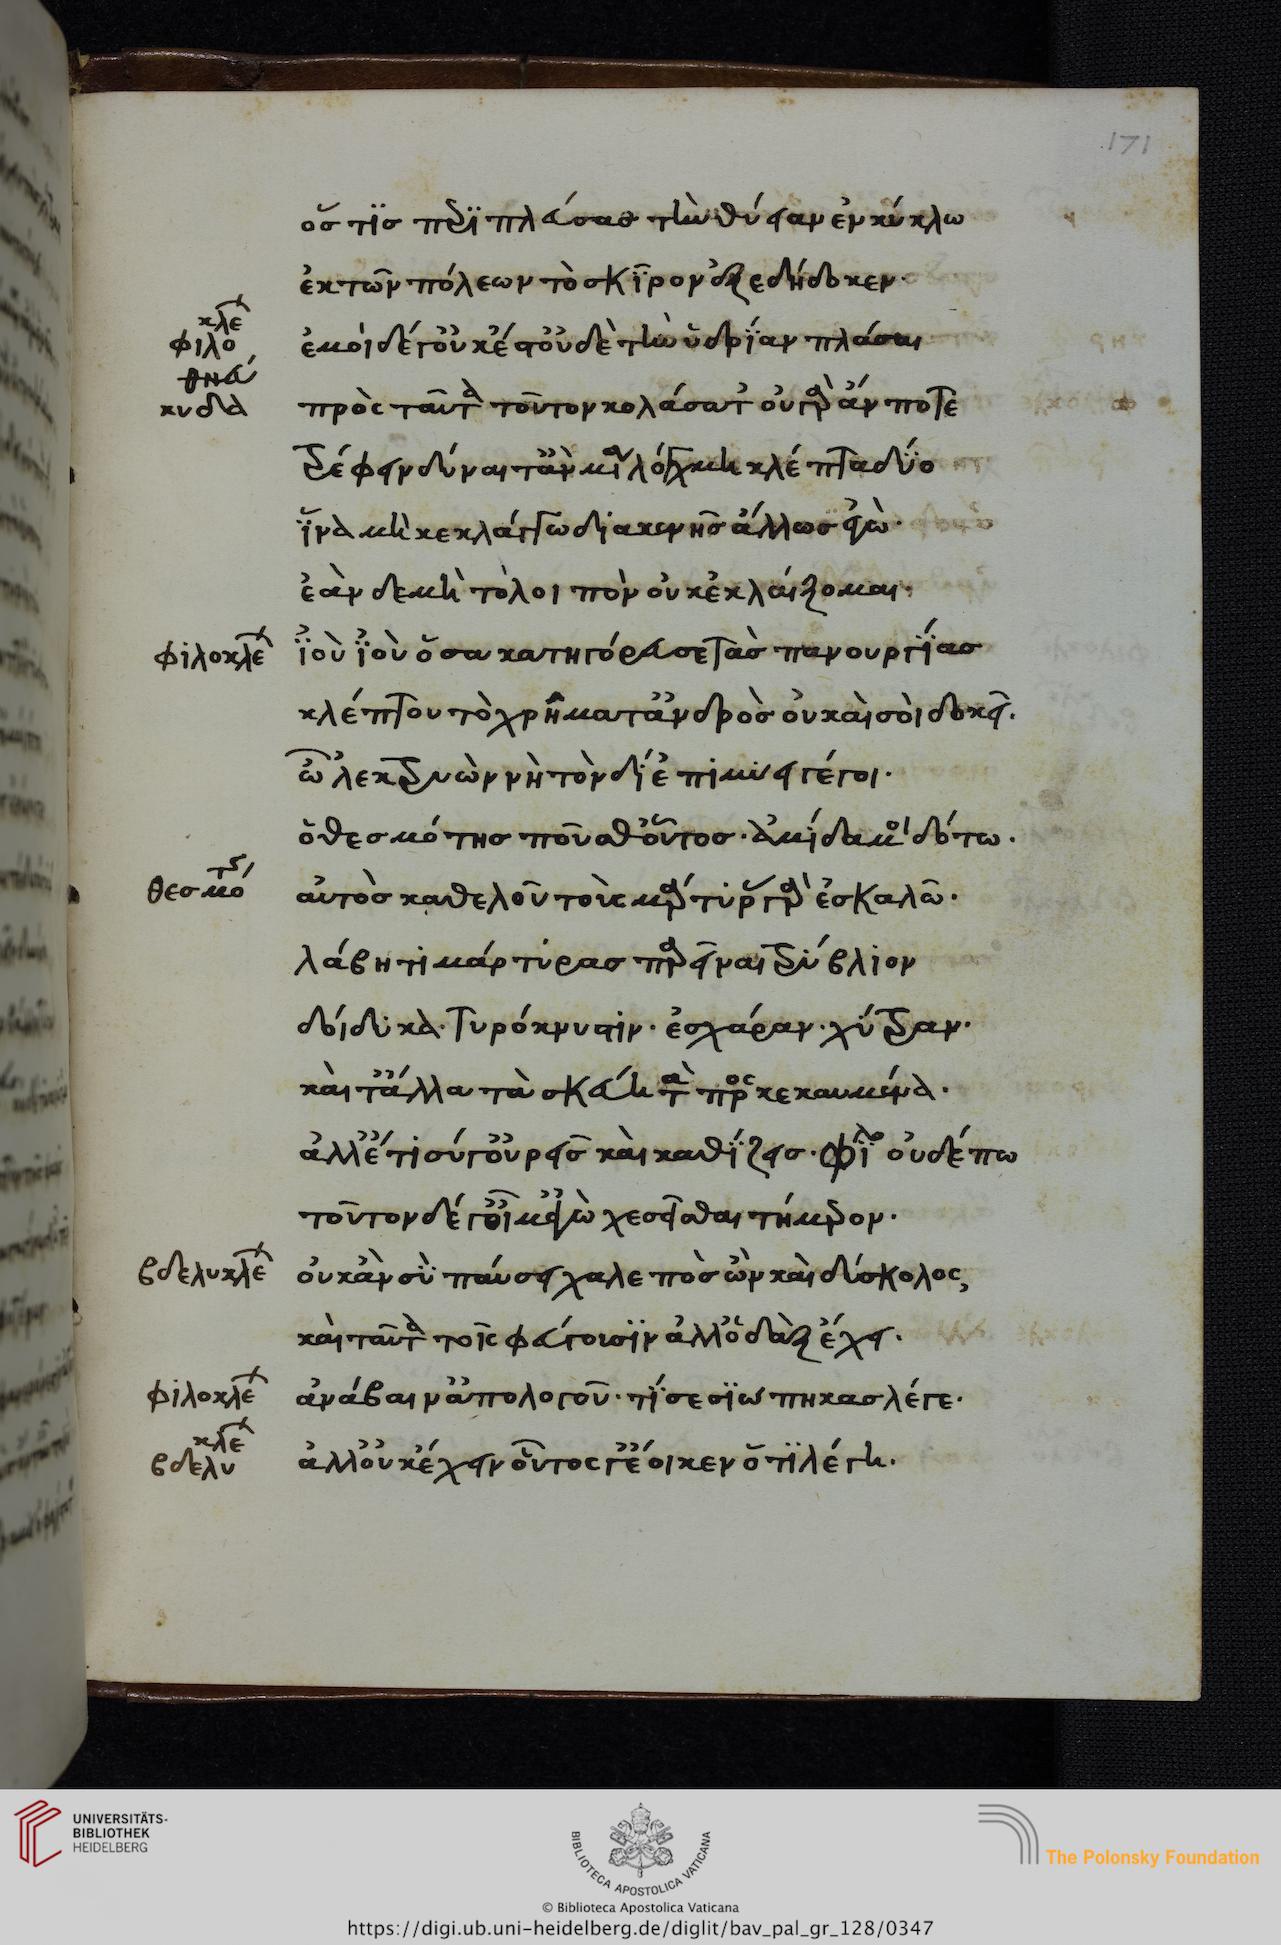 171
ὅστις περιπλεύσας τὴν θύειαν ἐν κύκλω
ἐκ τῶν πόλεων τὸ σκῖρον ἐξεδήδοκεν.
φιλοκλέ
ἐμοὶ δέ γ' οὐκ ἔστ' οὐδὲ τὴν ὑδρίαν πλάσαι
κυδα
πρὸς ταῦτα τοῦτον κολάσατ' οὐ γὰρ ἄν ποτε
τρέφειν δύναιτ' ἂν μία λόχμη κλέπτα δύο
ἵνα μὴ κεκλάγγω διακενῆς ἄλλως ἐγὼ.
ἐὰν δὲ μὴ τολοιπὸν οὐ κεκλάγξομαι.
φιλοκλέ ἰοὺ ἰοὺ ὅσα κατηγόρευσε τὰς πανουργίας
κλέπτον τὸ χρῆμα τἀνδρὸς οὐ καὶ σοὶ δοκεῖ.
ὦ 'λεκτρυὼν νὴ τὸν δί' ἐπιμύει γέ τοι.
ὁ θεσμότης ποῦ 'σθ' οὗτος. ἀμίδα μοι δότω.
θεσμό αὐτὸς καθελοῦ τοὺς μάρτυρας γὰρ ἐσκαλῶ.
λάβητι μάρτυρας παρεῖναι τρύβλιον
δοίδυκα. τυρόκνηστιν. ἐσχάραν. χύτραν.
καὶ τἄλλα τὰ σκεύη τὰ προσκεκαυμένα.
ἀλλ' ἔτι σύ γ' οὐρεῖς καὶ καθίζεις. οὐδέπω
τοῦτον δέ γ' οἶμ' ἐγὼ χεσεῖσθαι τήμερον.
βδελυκλέ οὐκ ἂν σὺ παύσει χαλεπὸς ὢν καὶ δύσκολος,
καὶ ταῦτα τοῖς φεύγουσιν ἀλλ' ὀδὰξ ἔχει.
φιλοκλέ ἀνάβαιν' ἀπολογοῦ. τί σεσιώπηκας λέγε.
βδελυκλέ ἀλλ' οὐκ ἔχειν οὗτος γ' ἔοικεν ὅτι λέγη.
UNIVERSITÄTS-
BIBLIOTHEK
HEIDELBERG
BIBLIOTECA APOSTOLICA VATICANA
The Polonsky Foundation
© Biblioteca Apostolica Vaticana
https://digi.ub.uni-heidelberg.de/diglit/bav_pal_gr_128/0347